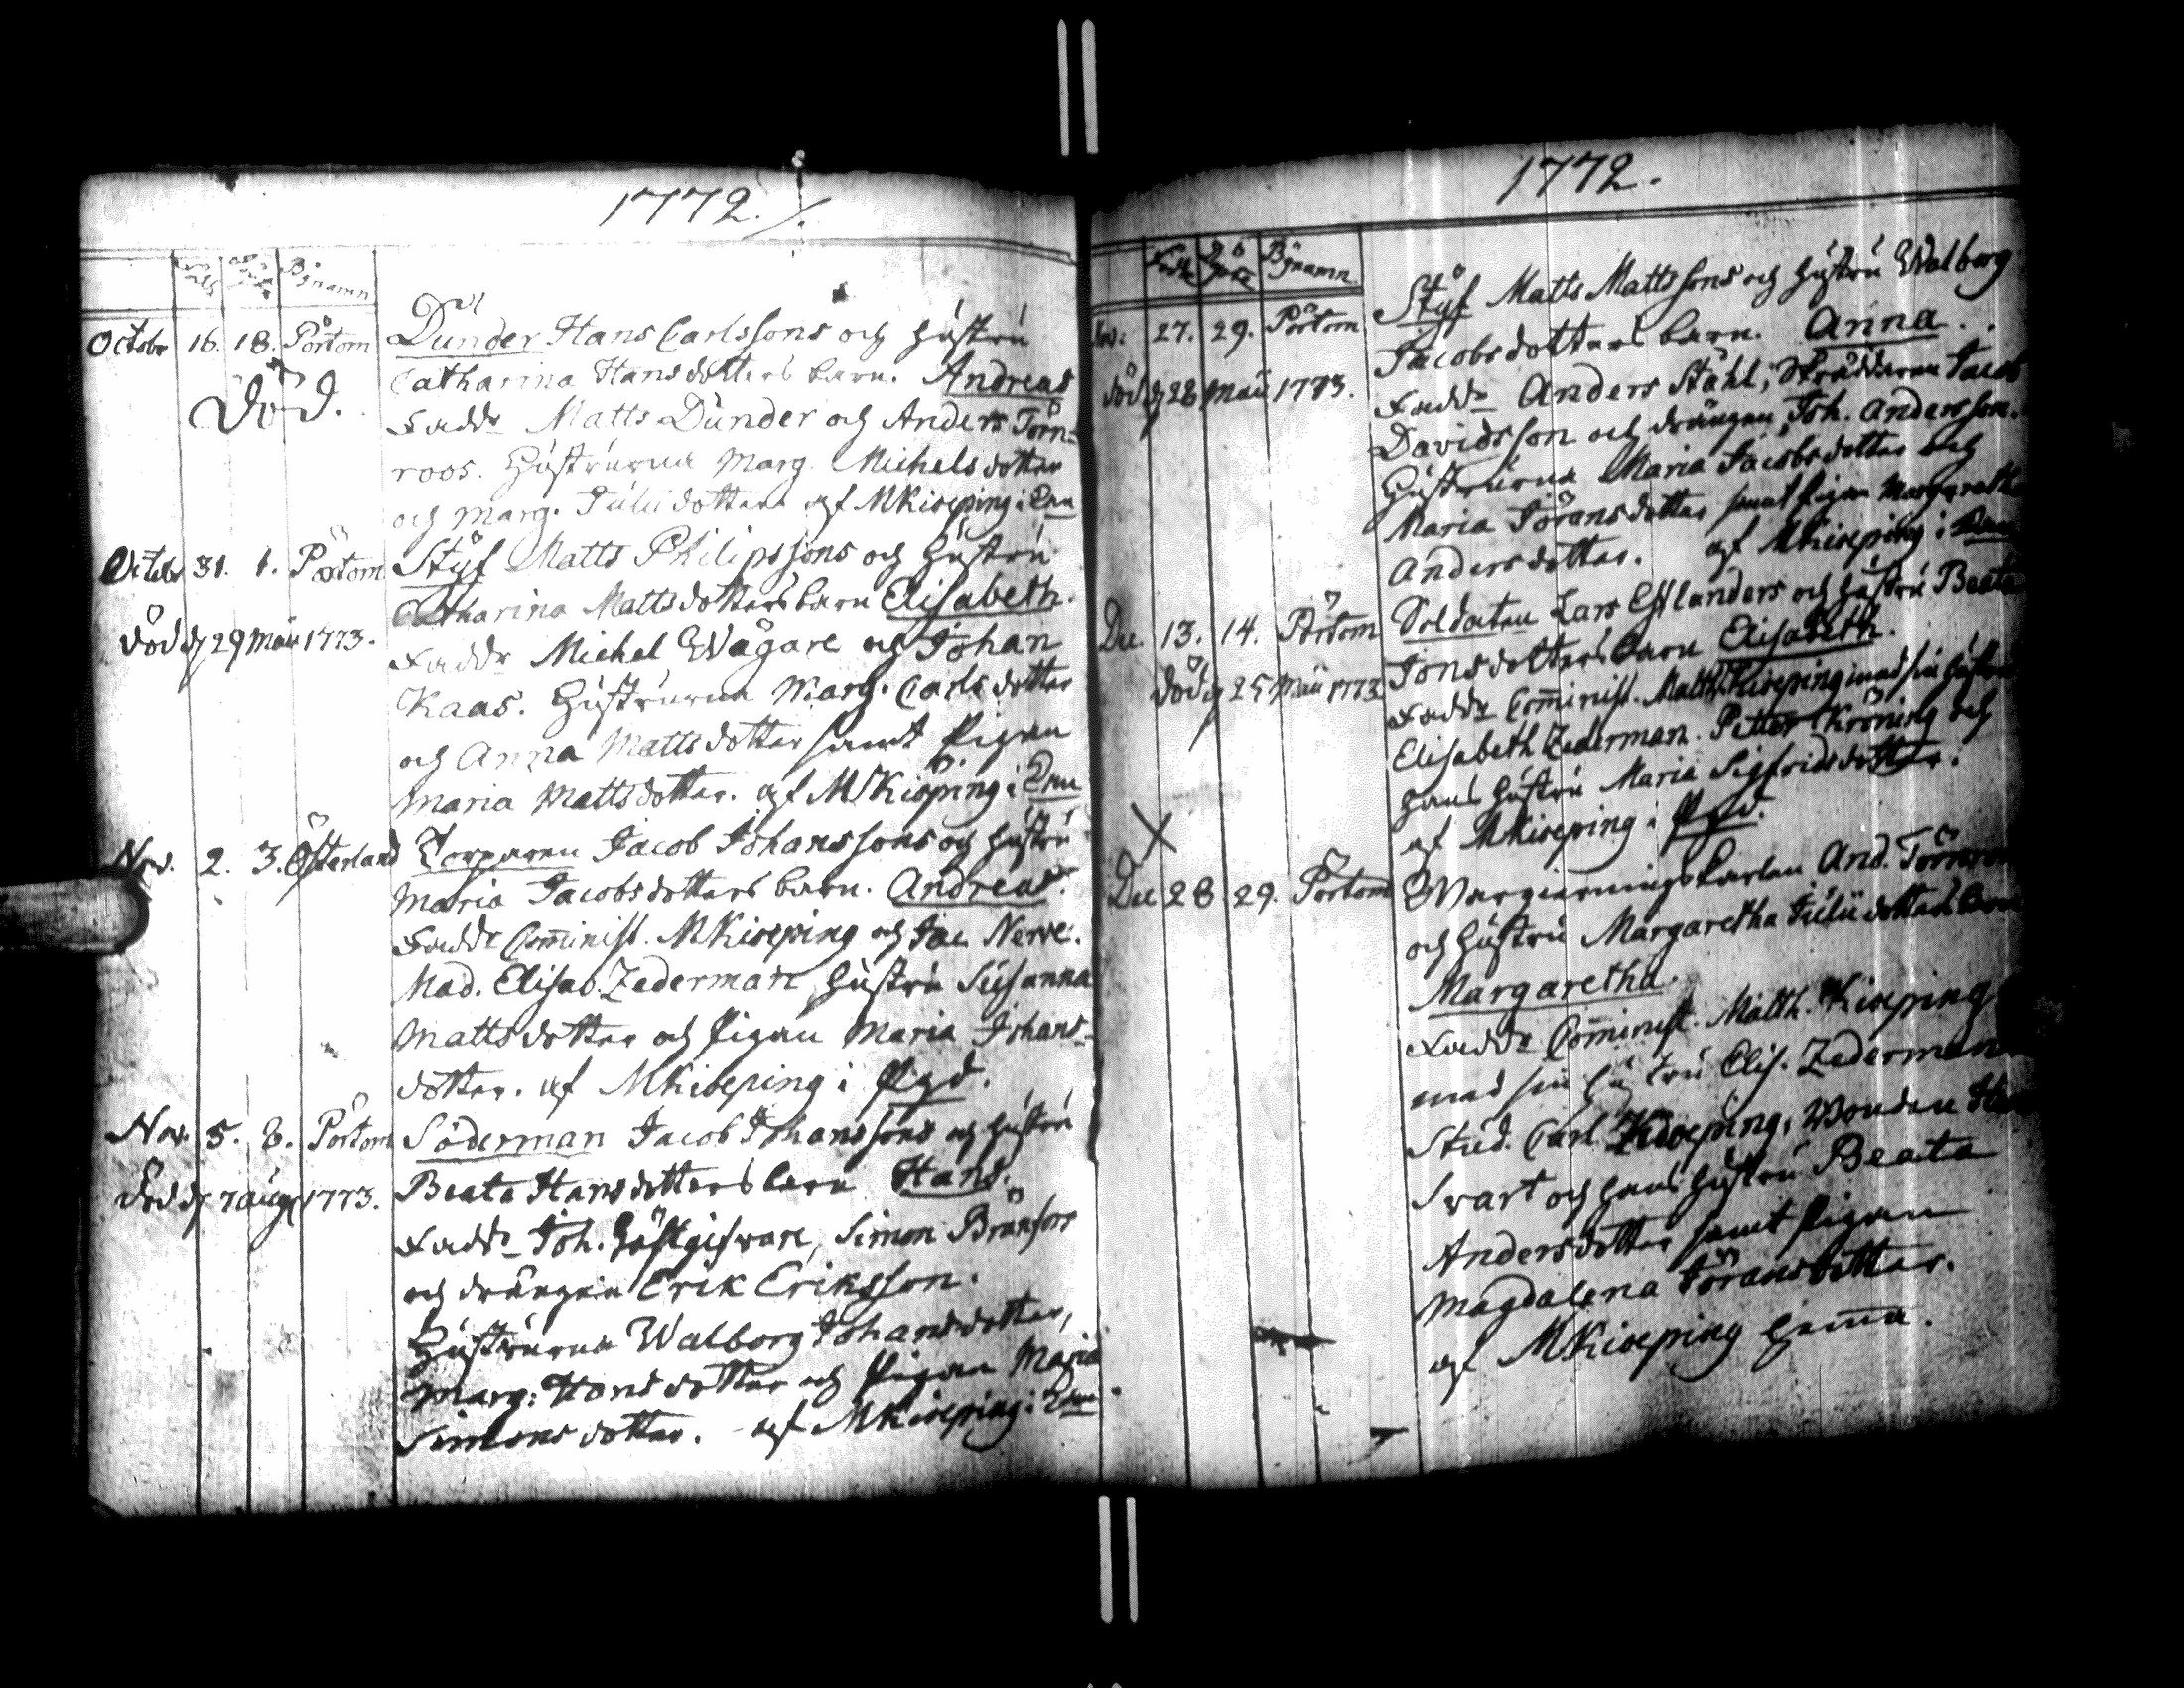 1772.
Född Döpt Bynamn
Octobr 16. 18. Pörtom Dunder Hans Carlssons och hustru
Död. Catharina Hansdotters barn. Andreas
Fadd. Matts Dunder och Anders Törn-
roos. Hustrurna Marg. Michelsdotter
och Marg. Juliidotter af MKiöping i
Octobr 31. 1. Pörtom Styf Matts Philipssons och hustru
Catharina Mattsdotters barn Elisabeth.
Död d 29 Maii 1773. Fadd. Michel Wägare och Johan
Kaas. Hustrurna Marg. Carlsdotter
och Anna Mattsdotter samt Pigan
Maria Mattsdotter. af MKiöping i
Nov. 2. 3. Österland Torparen Jacob Johanssons och hustru
Maria Jacobsdotters barn. Andreas.
Fadd. Com̄inist. MKiöping och Jac Nerve.
Mad. Elisab. Zederman, hustru Susanna
Mattsdotter och Pigan Maria Johans-
dotter. af MKiöping i Pgd.
Nov. 5. 8. Pörtom Söderman Jacob Johanssons och hustru
Död d 7 aug 1773. Beata Hansdotters barn Hans.
Fadd. Joh. Gästgifvare, Simon Bränfors
och drängen Erik Eriksson.
Hustrurna Walborg Johansdotter,
Marg: Hansdotter och Pigan Maria
Simonsdotter. af MKiöping i
1772.
Född Döpt Bynamn
Nov: 27. 29. Pörtom Styf Matts Mattssons och hustru Walborg
Jacobsdotters barn. Anna.
död d 28 Maii 1773. Fadd. Anders Ståhl, Skräddaren Jacob
Davidsson och drängen Joh. Andersson.
Hustrurna Maria Jacobsdotter och
Maria Jöransdotter samt Pigan Margareth
Andersdotter. af MKiöping i
Dec. 13. 14. Pörtom Soldaten Lars Estlanders och hustru Beata
Jonsdotters barn Elisabeth.
Död d 25 Maii 1773 Fadd. Com̄inist. Matth. Kiöping med sin hustru
Elisabeth Zederman. Petter Kröning och
hans hustru Maria Sigfridsdotter.
af MKiöping i Pgd.
Dec 28 29. Pörtom Wargierningskarlen And. Törnroos
och hustru Margaretha Juliidotters barn
Margaretha.
Fadd. Com̄inist. Matth. Kiöping
med sin hustru Elis. Zederman
Stud. Carl Kiöping, Bonden
Svart och hans hustru Beata
Andersdotter samt Pigan
Magdalena Jöransdotter.
af MKiöping hem̄a.